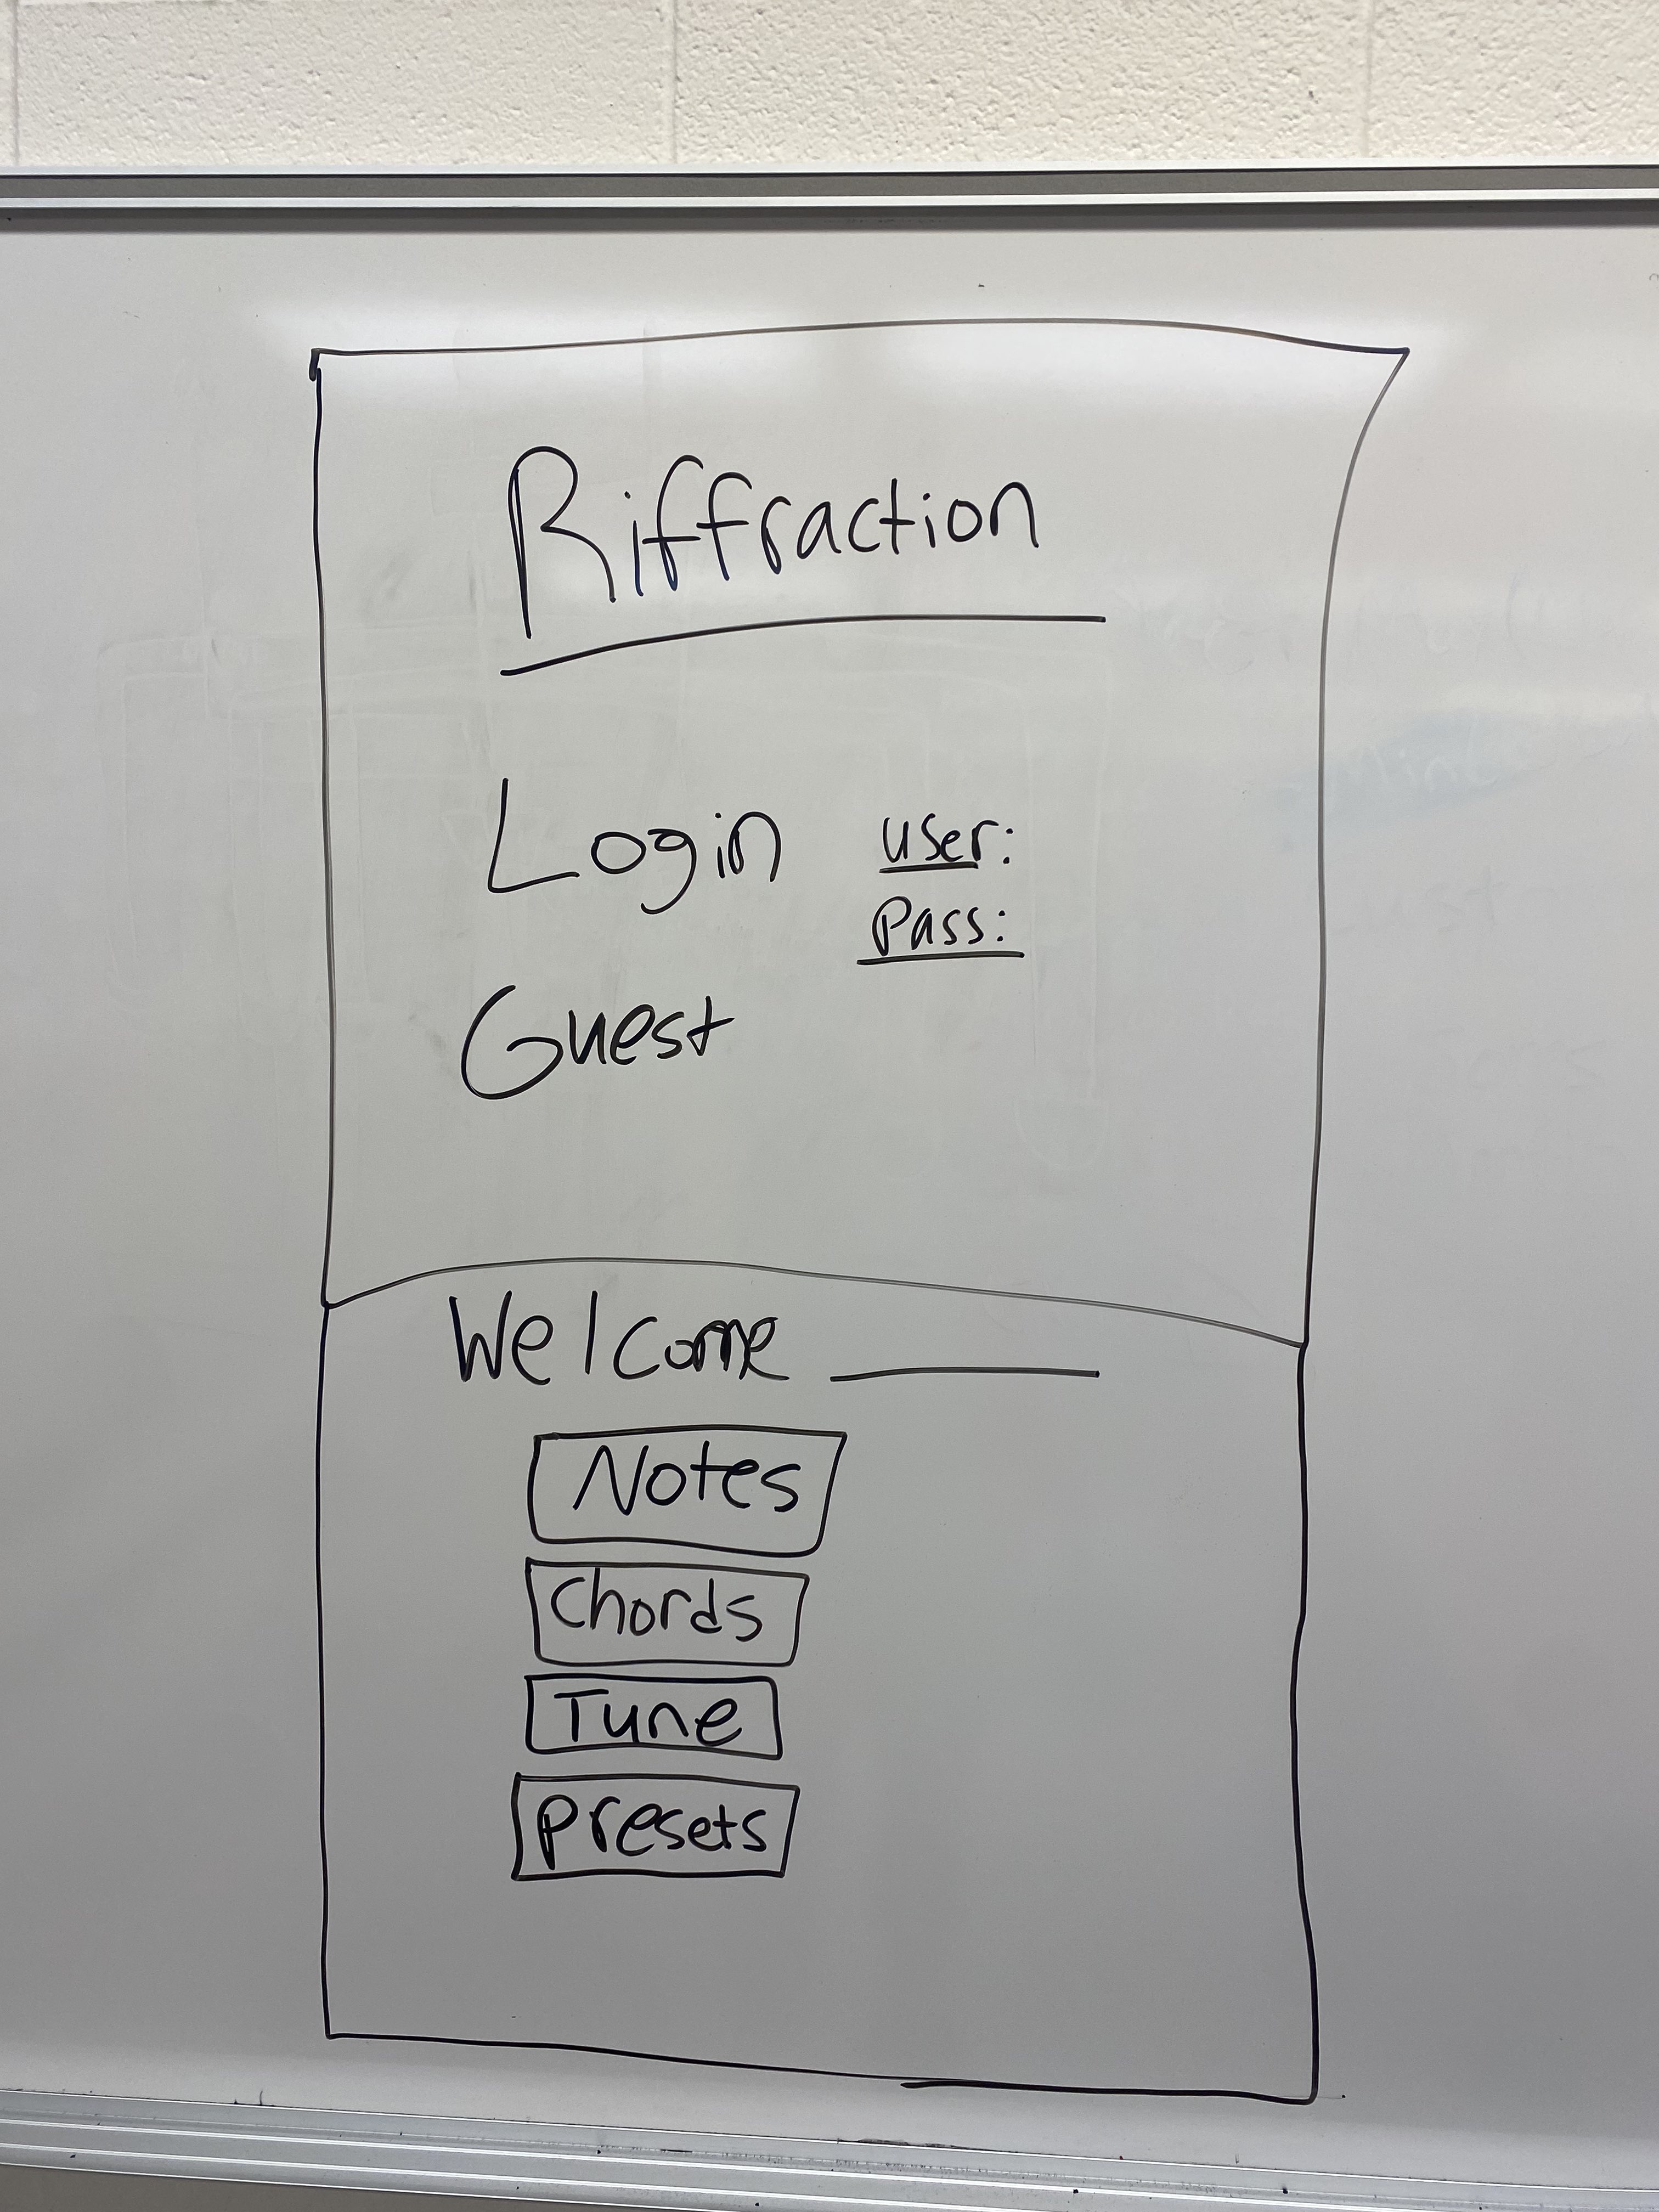 Riffraction
Login user:
Pass:
Guest
Welcome ______
Notes
Chords
Tune
Presets